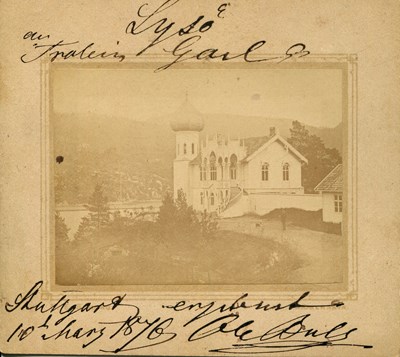 Lysö
an Fräulein Gail
Stuttgart ergebenst
10t März 1876 Ole Bull